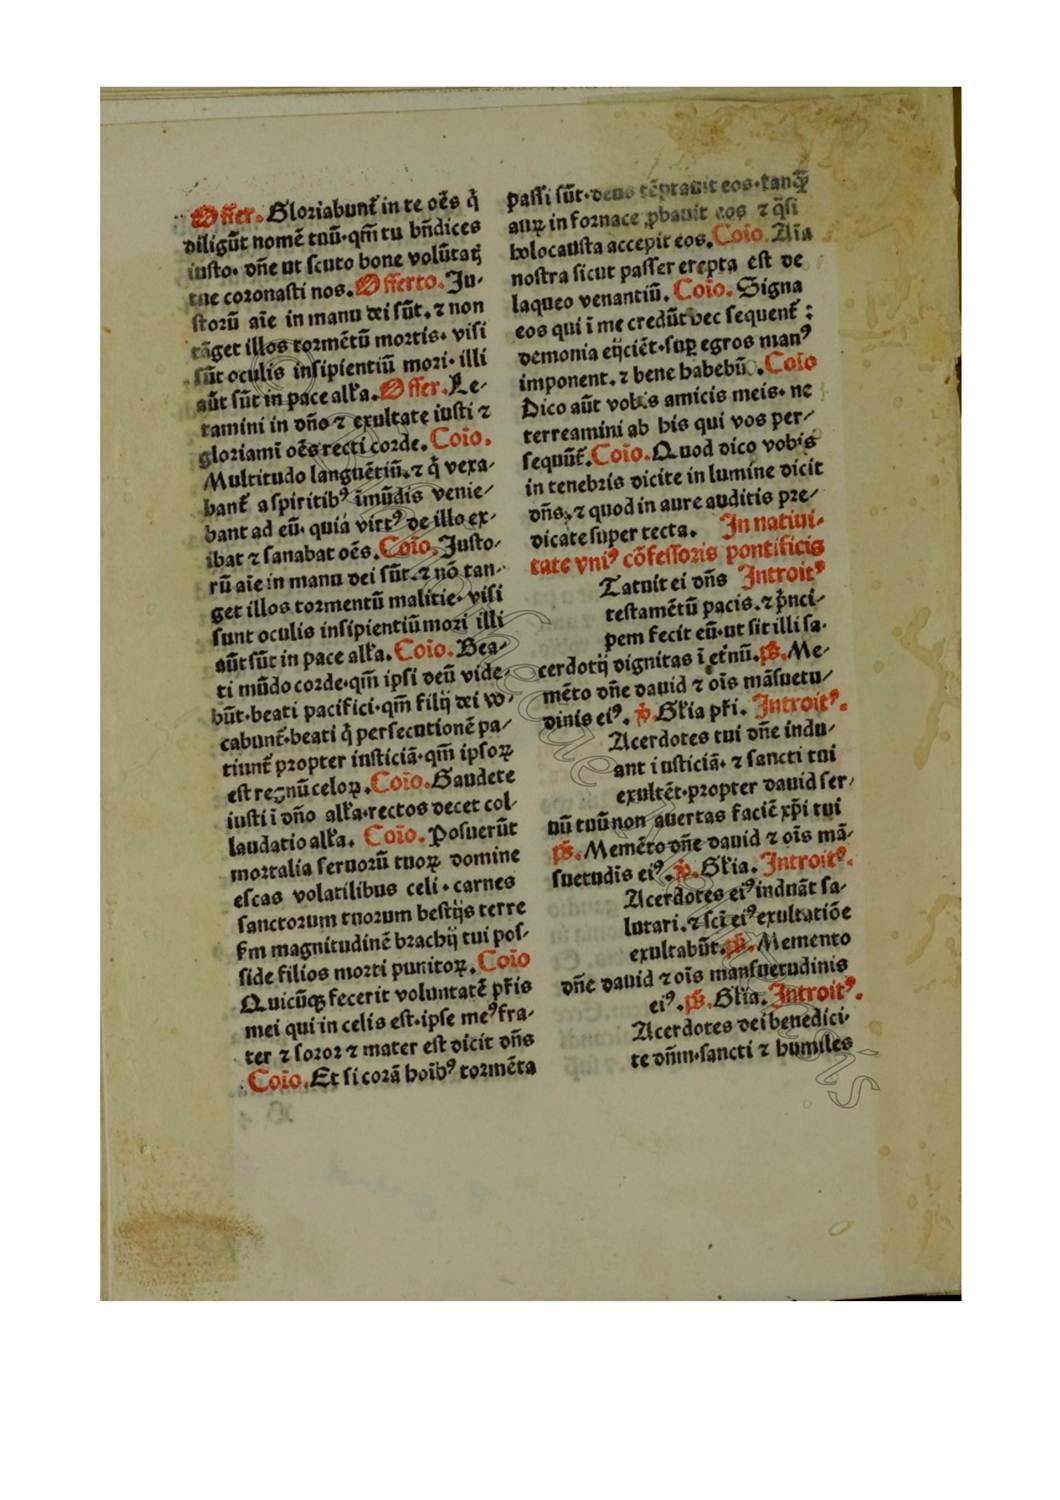 Offer. Gloriabunt᷑ in te oēs q̇
diligūt nomē tuū · qm̄ tu bn̄dices
iusto · dn̄e ut scuto bone volūtatꝭ
tue coronasti nos. Offerto. Ju-
storū aīe in manu dei sūt. ⁊ non
tāget illos tormētū mortis · visi
sūt oculis insipientiū mori · illi
aūt sūt in pace all'a. Offer. Le-
tamini in dn̄o ⁊ exultate iusti ⁊
gloriamī oēs recti corde. Coīo.
Multitudo languētiū. ⁊ q̇ vexa-
bant᷑ a spiritibꝰ īmūdis venie-
bant ad eū · quia virtꝰ de illo ex-
ibat ⁊ sanabat oēs. Coīo. Justo-
rū aīe in manu dei sūt. ⁊ nō tan-
get illos tormentū malitie · visi
sunt oculis insipientiū mori illi
aūt sūt in pace all'a. Coīo. Bea-
ti mūdo corde · qm̄ ipsi deū vide-
būt · beati pacifici · qm̄ filij dei vo-
cabunt᷑ · beati q̇ persecutionē pa-
tiunt᷑ propter iusticiā · qm̄ ipsoꝝ
est regnū celoꝝ. Coīo. Gaudete
iusti ī dn̄o all'a · rectos decet col-
laudatio all'a. Coīo. Posuerūt
mortalia seruorū tuoꝝ domine
escas volatilibus celi · carnes
sanctorum tuorum bestijs terre
ẜm magnitudinē brachij tui pos-
side filios morti punitoꝝ. Coīo
Quicūqꝫ fecerit voluntatē pr̄is
mei qui in celis est · ipse meꝰ fra-
ter ⁊ soror ⁊ mater est dicit dn̄s
Coīo. Et si corā hoībꝰ tormēta
passi sūt · deus tēptauit eos · tanqꝫ̄
auꝝ in fornace ꝓbauit eos ⁊ q̄si
holocausta accepit eos. Coīo. Aīa
nostra sicut passer erepta est de
laqueo venantiū. Coīo. Signa
eos qui ī me credūt hec sequent᷑ :
demonia eijciēt · suꝑ egros manꝰ
imponent. ⁊ bene habebū . Coīo
Dico aūt vobis amicis meis · ne
terreamini ab his qui vos per-
sequūt᷑. Coīo. Quod dico vobis
in tenebris dicite in lumine dicit
dn̄s. ⁊ quod in aure auditis pre-
dicate super tecta. In natiui-
tate vniꝰ cōfessoris pontificis
Tatuit ei dn̄s Introitꝰ
testamētū pacis. ⁊ p̄nci-
pem fecit eū · ut sit illi sa-
cerdotij dignitas ī et᷑nū. ps̄. Me-
mēto dn̄e dauid ⁊ oīs māsuetu-
dinis eiꝰ. ꝟ. Gl'ia pr̄i. Introitꝰ.
Acerdotes tui dn̄e indu-
ant iusticiā · ⁊ sancti tui
exultēt · propter dauid ser-
uū tuū non auertas faciē xp̄i tui
ps̄. Memēto dn̄e dauid ⁊ oīs mā-
suetudīs eiꝰ. ꝟ. Gl'ia. Introitꝰ.
Acerdotes eiꝰ induāt sa-
lutari. ⁊ sci̅ eiꝰ exultatiōe
exultabūt. ps̄. Memento
dn̄e dauid ⁊ oīs mansuetudinis
eiꝰ. ps̄. Gl'ia. Introitꝰ.
Acerdotes dei benedici-
te dn̄m · sancti ⁊ humiles